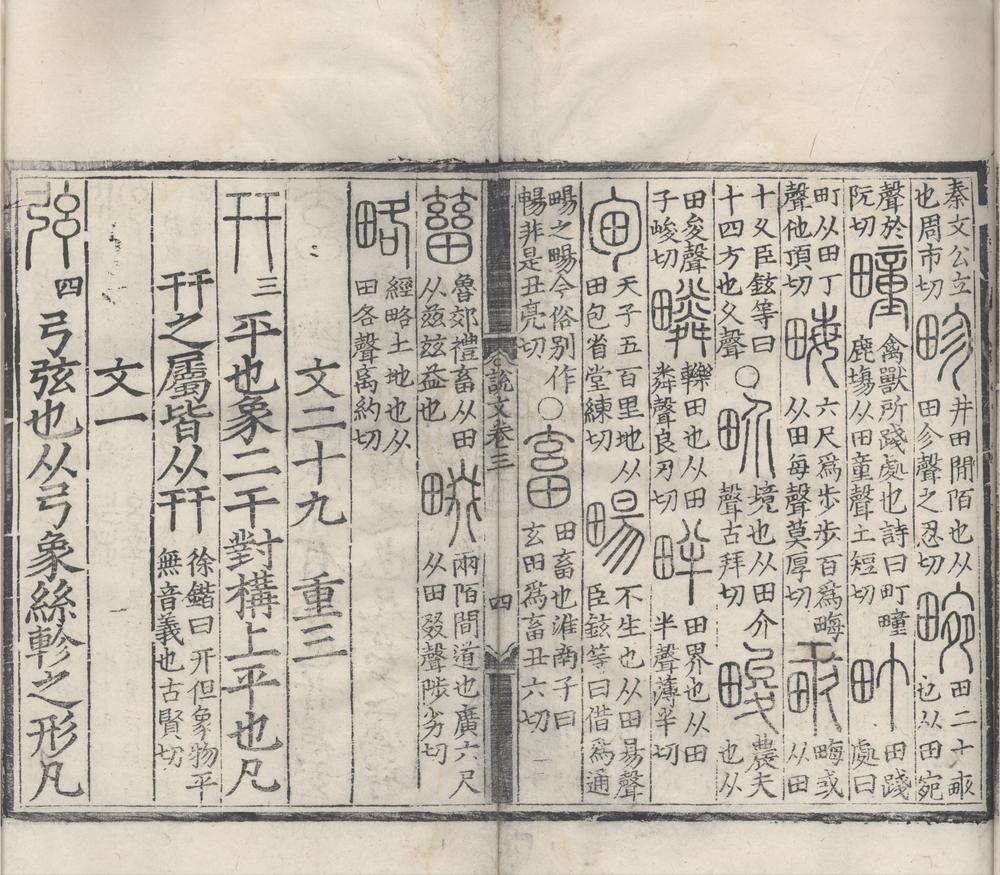 秦文公立
也周市切
畛
井田閒陌也从
田㐱聲之忍切
畹
田二十畞
也从田宛
聲於
阮切
疃
禽獸所踐處也詩曰町疃
鹿塲从田童聲土短切
町
田踐
處曰
町从田丁
聲他頂切
畮
六尺爲步步百爲畮
从田每聲莫厚切
畞
畮或
从田
十久臣鉉等曰
十四方也久聲
○
畍
境也从田介
聲古拜切
畯
農夫
也从
田夋聲
子峻切
疄
轢田也从田
粦聲良刃切
畔
田界也从田
半聲薄半切
甸
天子五百里地从
田包省堂練切
畼
不生也从田昜聲
臣鉉等曰借爲通
畼之畼今俗别作
暢非是丑亮切
○
畜
田畜也淮南子曰
玄田爲畜丑六切
說文卷三
四
𤲸
魯郊禮畜从田
从兹兹益也
畷
兩陌間道也廣六尺
从田叕聲陟劣切
略
經略土地也从
田各聲离約切
文二十九 重三
幵三平也象二干對構上平也凡
幵之屬皆从幵
徐鍇曰幵但象物平
無音義也古賢切
文一
弦四弓弦也从弓象絲軫之形凡